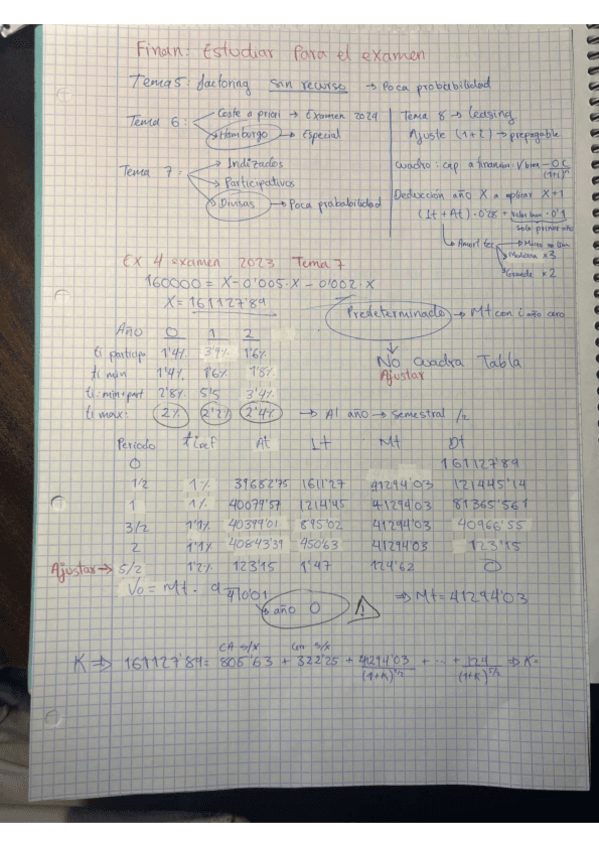 Finan: Estudiar para el examen
Tema 5: factoring sin recurso → Poca probabilidad
Tema 6:
Coste a priori → Examen 2024
Hamburgo → Especial
Tema 7:
Indizados
Participativos
Divisas → Poca probabilidad
Tema 8 → Leasing
Ajuste (1+i) → prepagable
Cuadro: cap a financiar: Vbien - OC/(1+i)^n
Deducción año X a aplicar X+1
(It + At) · 0'28 + valor bien · 0'1
solo primer año
→ Amort fec
→ Micro
→ Mediana x3
→ Grande x2
Ex 4 examen 2023 Tema 7
160000 = X - 0'005·X - 0'002·X
X = 161127'89
Predeterminado → Mt con i año cero
↓
No cuadra Tabla
Ajustar
Año 0 1 2
ti particip 1'4% 3'9% 1'6%
ti min 1'4% 1'6% 1'8%
ti: min+part 2'8% 5'5 3'4%
ti max: 2% 2'2% 2'4% → Al año → semestral /2
Periodo ti ef At It Mt Dt
0 161127'89
1/2 1% 39682'75 1611'27 41294'03 121445'14
1 1% 40079'57 1214'45 41294'03 81365'561
3/2 1'1% 40399'01 895'02 41294'03 40966'55
2 1'1% 40843'39 450'63 41294'03 123'15
Ajustar → 5/2 1'2% 123'15 1'47 124'62 0
Vo = Mt · a 4¬0'01 ⇒ Mt = 41294'03
año 0
CA s/X Con s/X
K ⇒ 161127'89 = 805'63 + 322'25 + 41294'03/(1+K)^1/2 + ... + 124/(1+K)^5/2 ⇒ K=